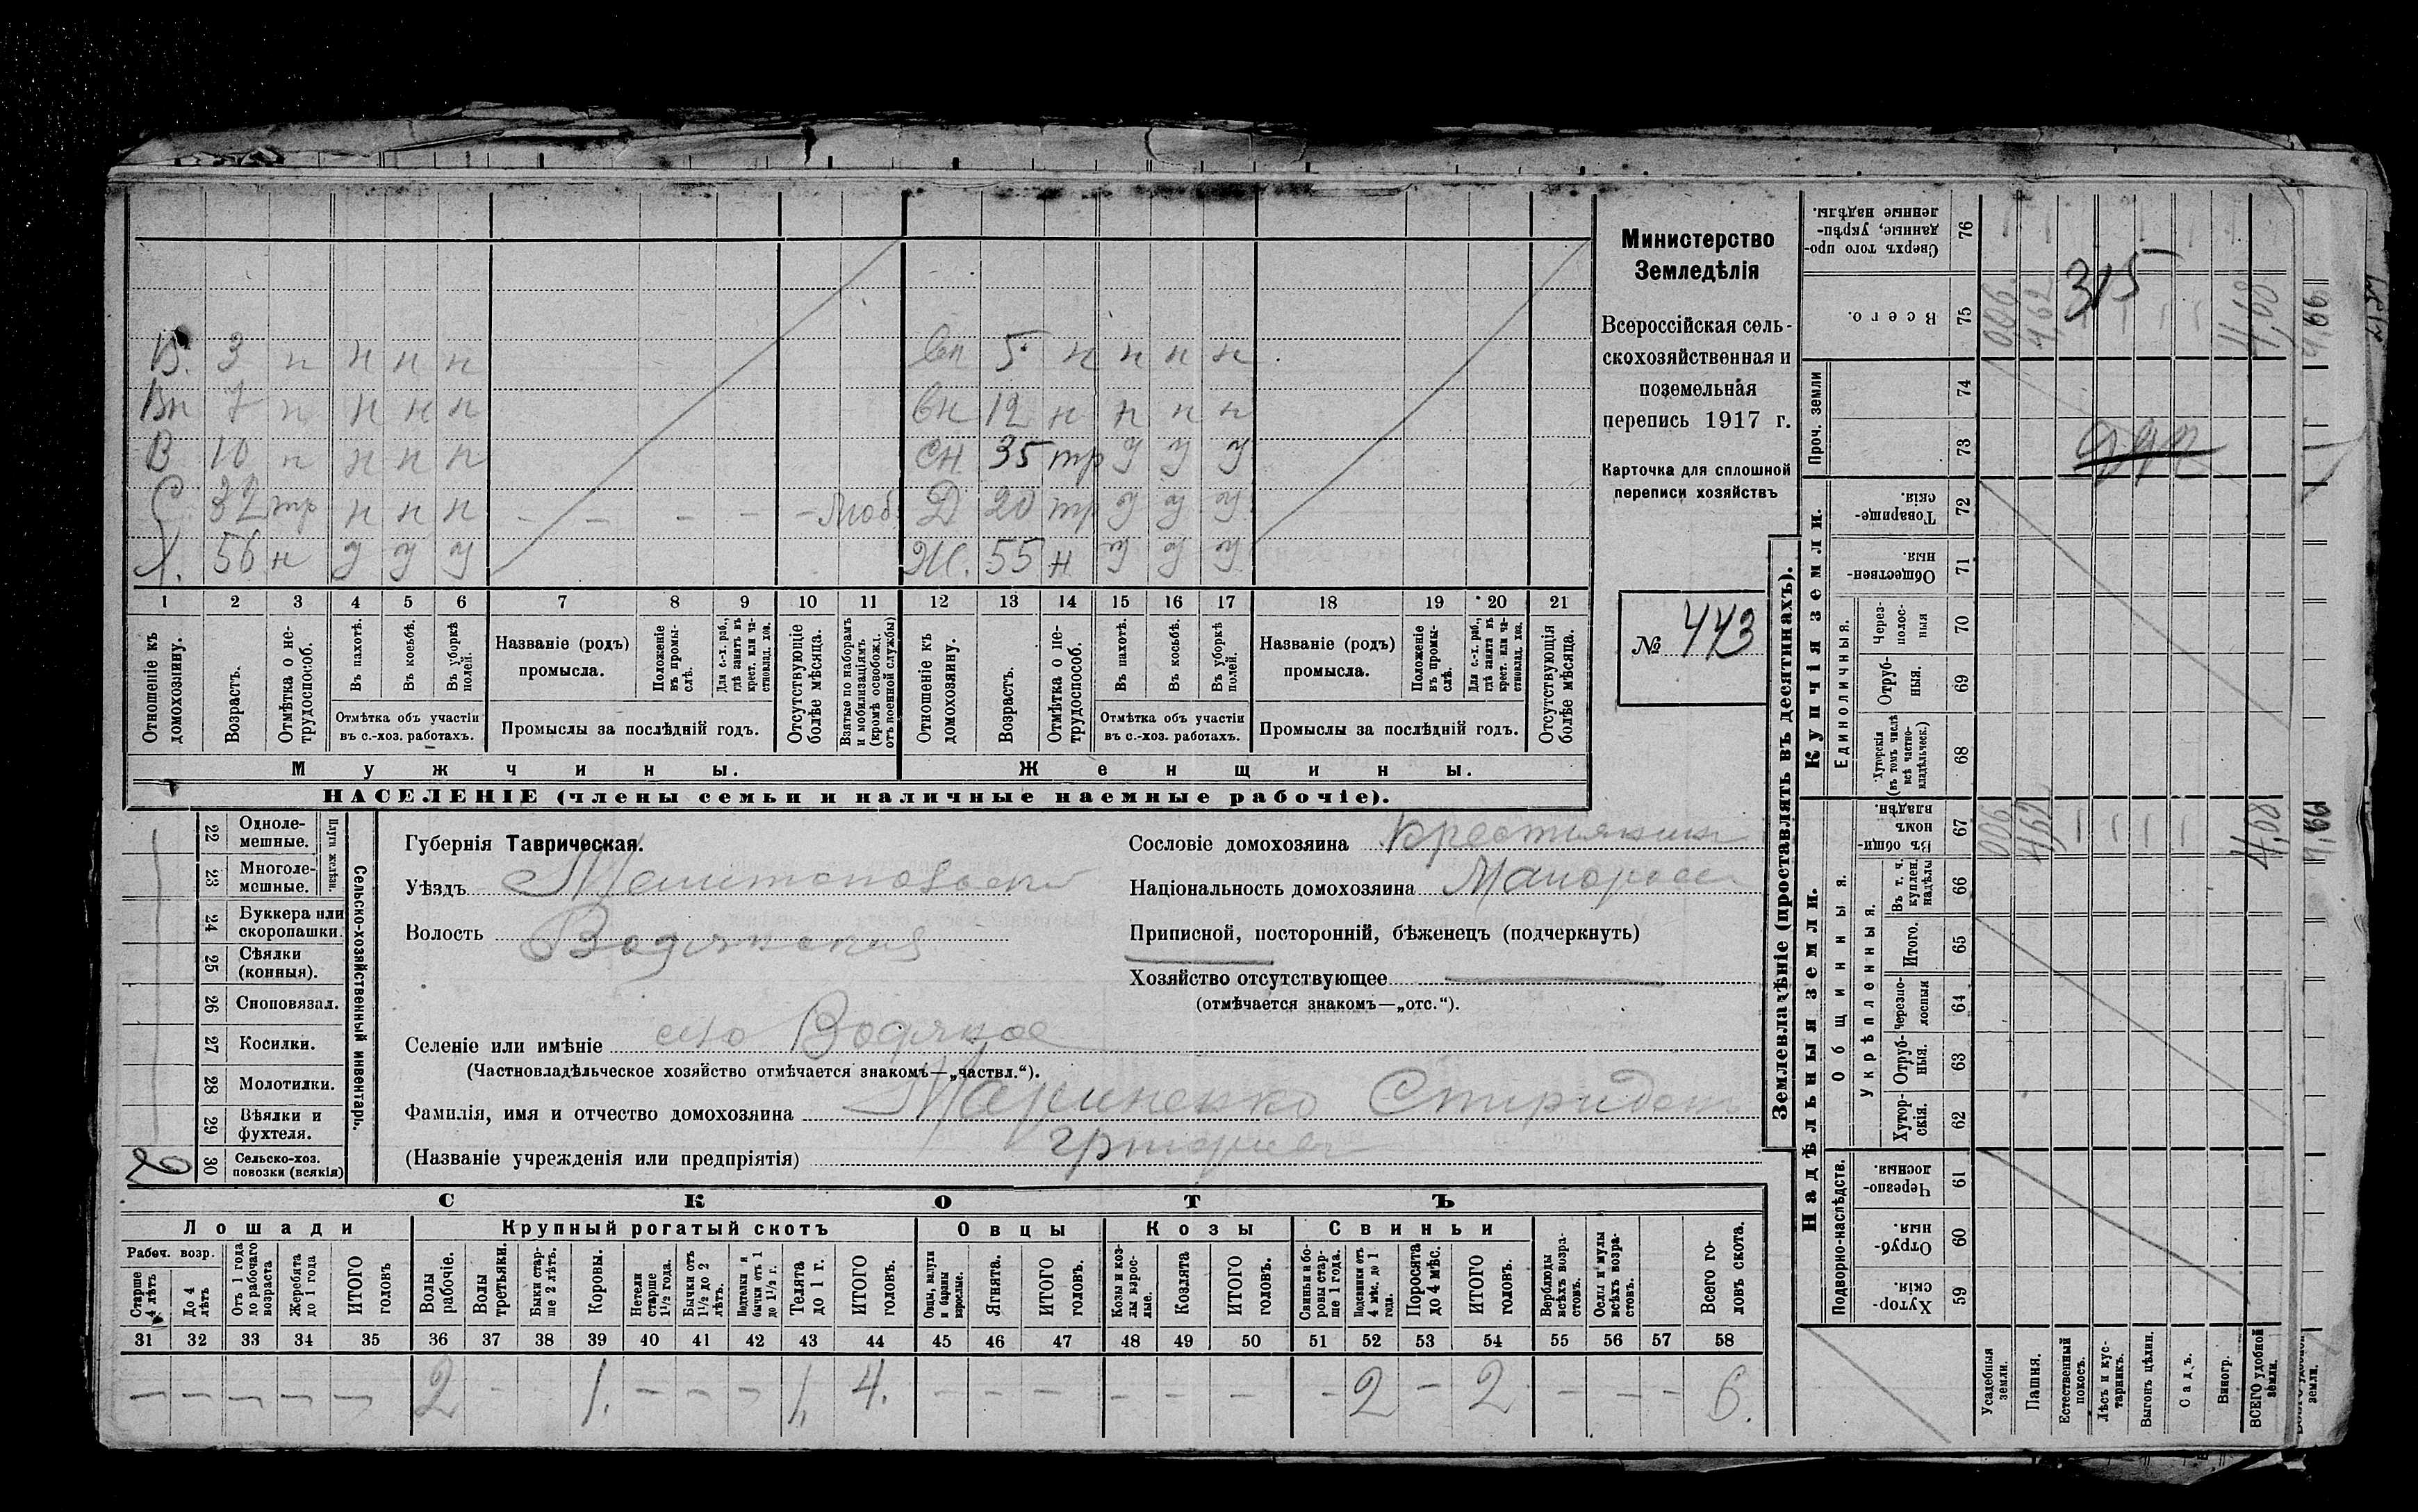 В. 3 н н н н
Вн 7 н н н н
В 10 н н н н
С 32 тр н н н - - - - - Моб.
Х. 56 н у у у
вн 5 н н н н
вн 12 н н н н
сн 35 тр у у у
Д 20 тр у у у
Ж. 55 н у у у
1 2 3 4 5 6 7 8 9 10 11 12 13 14 15 16 17 18 19 20 21
Отношеніе къ домохозяину.
Возрастъ.
Отмѣтка о не-трудоспособ.
Въ пахотѣ.
Въ косьбѣ.
Въ уборкѣ полей.
Отмѣтка объ участіи
въ с.-хоз. работахъ.
Названіе (родъ)
промысла.
Положеніе въ промы-слѣ.
Для с.-х. раб., гдѣ занятъ въ крест. или ча-стновлад. хоз.
Промыслы за послѣдній годъ.
Отсутствующіе болѣе мѣсяца.
Взятые по наборамъ и мобилизаціямъ (кромѣ освобожд. отъ военной службы)
Отношеніе къ домохозяину.
Возрастъ.
Отмѣтка о не-трудоспособ.
Въ пахотѣ.
Въ косьбѣ.
Въ уборкѣ полей.
Отмѣтка объ участіи
въ с.-хоз. работахъ.
Названіе (родъ)
промысла.
Положеніе въ промы-слѣ.
Для с.-х. раб., гдѣ занята въ крест. или ча-стновлад. хоз.
Промыслы за послѣдній годъ.
Отсутствующія болѣе мѣсяца.
Мужчины.
Женщины.
НАСЕЛЕНІЕ (члены семьи и наличные наемные рабочіе).
Министерство
Земледѣлія
Всероссійская сель-
скохозяйственная и
поземельная
перепись 1917 г.
Карточка для сплошной
переписи хозяйствъ
№ 443
22 Одноле-мешные.
23 Многоле-мешные.
Плуги желѣзн.
24 Буккера или скоропашки.
25 Сѣялки (конныя).
26 Сноповязал.
27 Косилки.
28 Молотилки.
29 Вѣялки и фухтеля.
30 Сельско-хоз. повозки (всякія)
Сельско-хозяйственный инвентарь.
Губернія Таврическая.
Уѣздъ Мелитопольский
Волость Водянская
Сословіе домохозяина Крестьянин
Національность домохозяина Малоросс
Приписной, посторонній, бѣженецъ (подчеркнуть)
Хозяйство отсутствующее
(отмѣчается знакомъ—„отс.“).
Селеніе или имѣніе село Водяное
(Частновладѣльческое хозяйство отмѣчается знакомъ—„частвл.“).
Фамилія, имя и отчество домохозяина
(Названіе учрежденія или предпріятія)
СКОТЪ
Лошади
Крупный рогатый скотъ
Овцы
Козы
Свиньи
Рабоч. возр.
Старше 4 лѣтъ
До 4 лѣтъ
Отъ 1 года до рабочаго возраста
Жеребята до 1 года
ИТОГО головъ
Волы рабочіе.
Волы третьяки.
Быки стар-ше 2 лѣтъ.
Коровы.
Нетели старше 1½ года.
Бычки отъ 1½ до 2 лѣтъ.
Подтелки и бычки отъ 1 до 1½ г.
Телята до 1 г.
ИТОГО головъ.
Овцы, валухи и бараны взрослые.
Ягнята.
ИТОГО головъ.
Козы и коз-лы взрос-лые.
Козлята
ИТОГО головъ.
Свиньи и бо-ровы стар-ше 1 года.
Подсвинки отъ 4 мѣс. до 1 года.
Поросята до 4 мѣс.
ИТОГО головъ.
Верблюды всѣхъ возра-стовъ.
Ослы и мулы всѣхъ возра-стовъ.
Всего го-ловъ скота.
31 32 33 34 35 36 37 38 39 40 41 42 43 44 45 46 47 48 49 50 51 52 53 54 55 56 57 58
— — — — — 2 - - 1. - - - 1. 4. - - - - - - - 2 - 2 - - - 6.
Землевладѣніе (проставлять въ десятинахъ).
Купчія земли.
Надѣльныя земли.
Проч. земли
Единоличныя.
Общинныя.
Укрѣпленныя.
Подворно-наслѣдств.
Сверхъ того про-данные, укрѣп-ленные надѣлы. 76
Всего. 75
74
73
Товарище-скія. 72
Обществен-ныя. 71
Через-полос-ныя 70
Отруб-ныя. 69
Хуторскія (въ томъ числѣ всѣ частно-владѣльческ.) 68
Въ общин-номъ владѣн. 67
Въ т. ч. куплен. надѣлы 66
Итого. 65
Черезпо-лосныя 64
Отруб-ныя. 63
Хутор-скія. 62
Черезпо-лосныя. 61
Отруб-ныя. 60
Хутор-скія. 59
Усадебныя земли.
Пашня.
Естественный покосъ.
Лѣсъ и кус-тарникъ.
Выгонъ цѣлин.
Садъ.
Виногр.
ВСЕГО удобной земли.
315
006 4,62 4,68
006 4,62 4,68